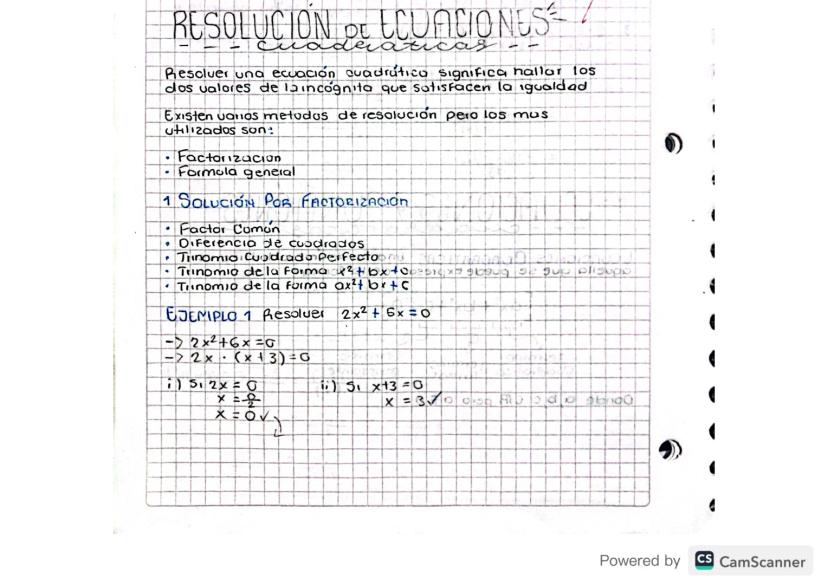 RESOLUCIÓN DE ECUACIONES
cuadráticas
Resolver una ecuación cuadrática significa hallar los
dos valores de la incógnita que satisfacen la igualdad
Existen varios metodos de resolución pero los mas
utilizados son:
• Factorizacion
• Formula general
1 SOLUCIÓN POR FACTORIZACIÓN
• Factor Común
• Diferencia de cuadrados
• Trinomio Cuadrado Perfecto
• Trinomio de la forma x²+bx+c
• Trinomio de la forma ax²+bx+c
EJEMPLO 1 Resolver 2x²+6x=0
-> 2x²+6x=0
-> 2x · (x+3)=0
i) Si 2x = 0 ii) Si x+3=0
x = 0/2 x = 3✓
x = 0✓
Powered by CS CamScanner